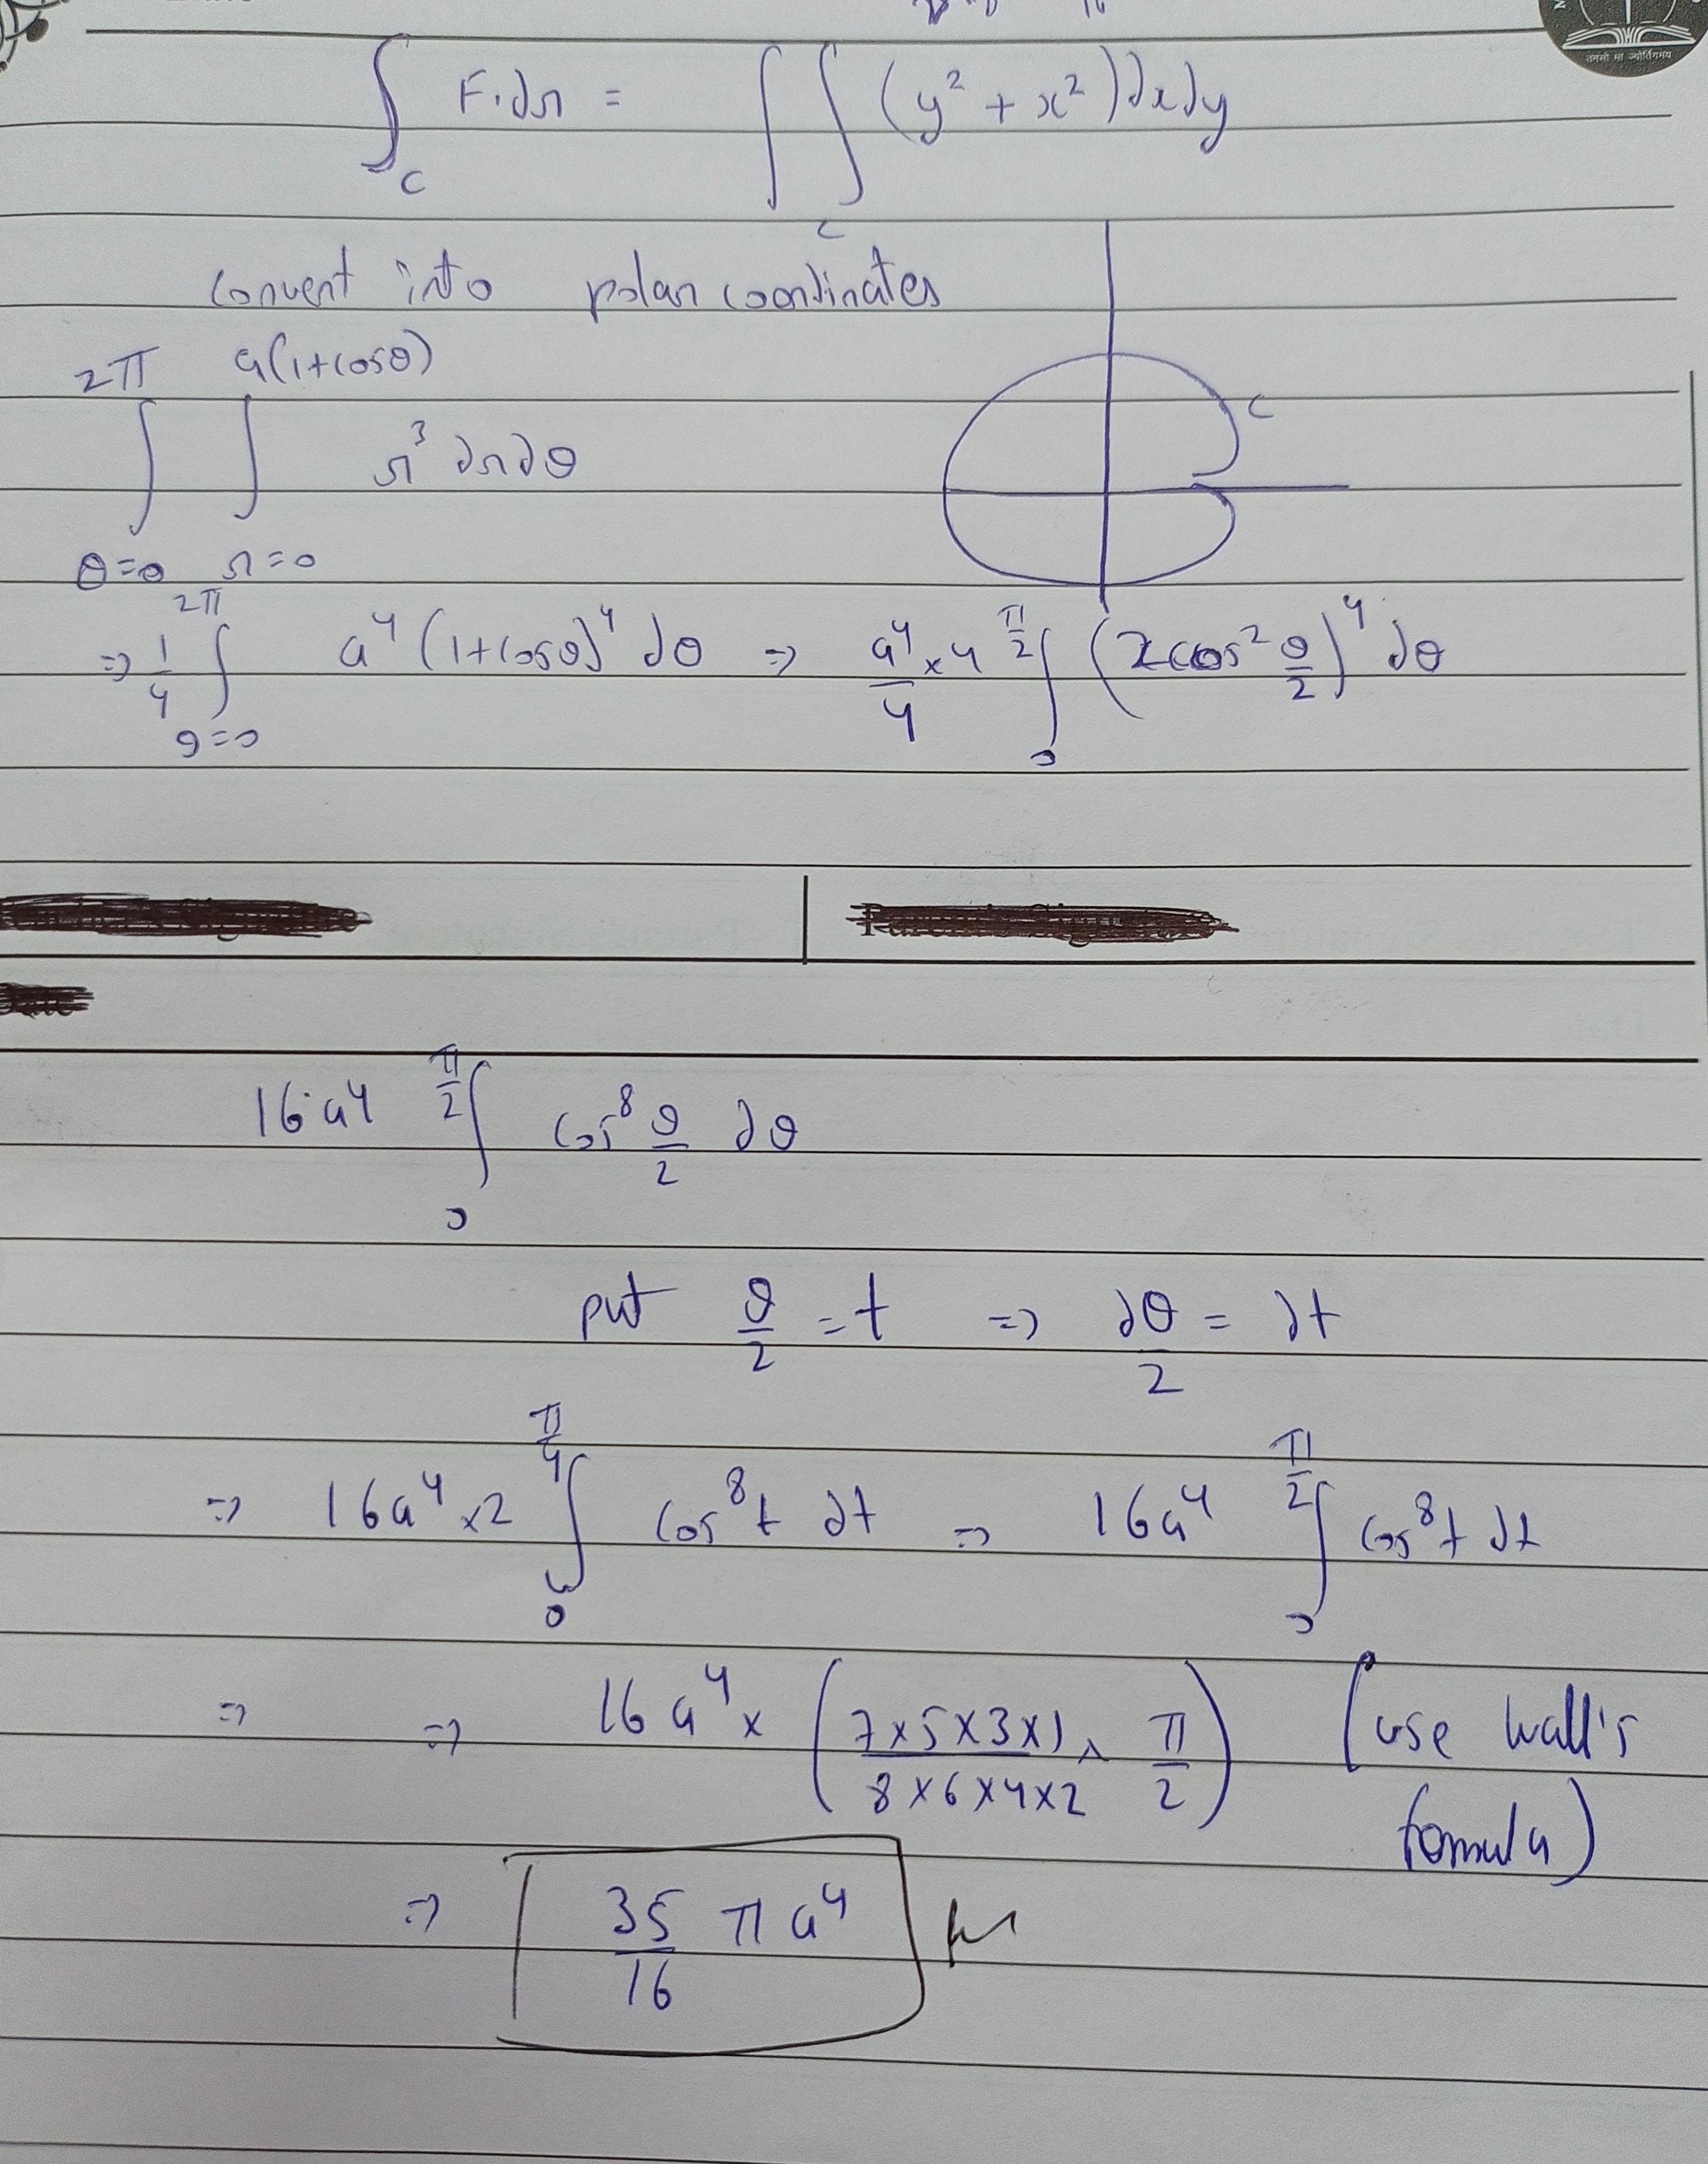 ∫_C F.dr = ∫∫_C (y² + x²) dx dy
तमसो मा ज्योतिर्गमय
convert into polar coordinates
∫_{θ=0}^{2π} ∫_{r=0}^{a(1+cosθ)} r³ dr dθ
C
⇒ 1/4 ∫_{θ=0}^{2π} a⁴ (1+cosθ)⁴ dθ ⇒ a⁴/4 × 4 ∫_0^{π/2} (2cos² θ/2)⁴ dθ
16 a⁴ ∫_0^{π/2} cos⁸ θ/2 dθ
put θ/2 = t ⇒ dθ/2 = dt
⇒ 16a⁴ × 2 ∫_0^{π/4} cos⁸ t dt ⇒ 16a⁴ ∫_0^{π/2} cos⁸ t dt
⇒ ⇒ 16 a⁴ × (7×5×3×1 / 8×6×4×2 × π/2) (use wall's
formula)
⇒ 35/16 π a⁴